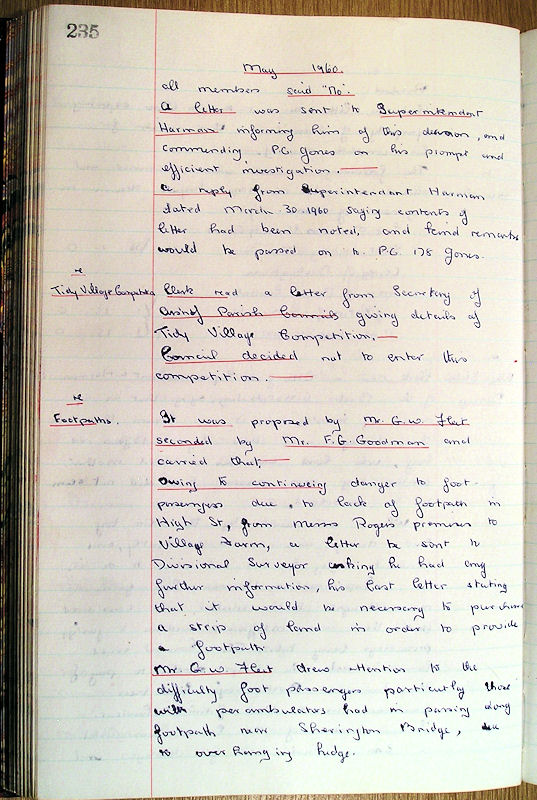 235
May 1960.
all members said "No".
A letter was sent to Superintendent
Harman informing him of this decision, and
commending P.C. Jones on his prompt and
efficient investigation.
a reply from Superintendant Harman
dated March 30 1960 saying contents of
letter had been noted, and kind remarks
would be passed on to P.C. 178 Jones.
re
Tidy Village Competition
Clerk read a letter from Secretary of
Assn of Parish Councils giving details of
Tidy Village Competition.
Council decided not to enter this
competition.
re
Footpaths.
It was proposed by Mr. G.W. Fleet
seconded by Mr. F.G. Goodman and
carried that,
owing to continueing danger to foot-
passengers due to lack of footpath in
High St, from Messrs Rogers premises to
Village Farm, a letter be sent to
Divisional Surveyor asking he had any
further information, his last letter stating
that it would be necessary to purchase
a strip of land in order to provide
a footpath.
Mr. G.W. Fleet drew attention to the
difficulty foot passengers particularly those
with perambulators had in passing along
footpath near Sherington Bridge, due
to overhanging hedge.